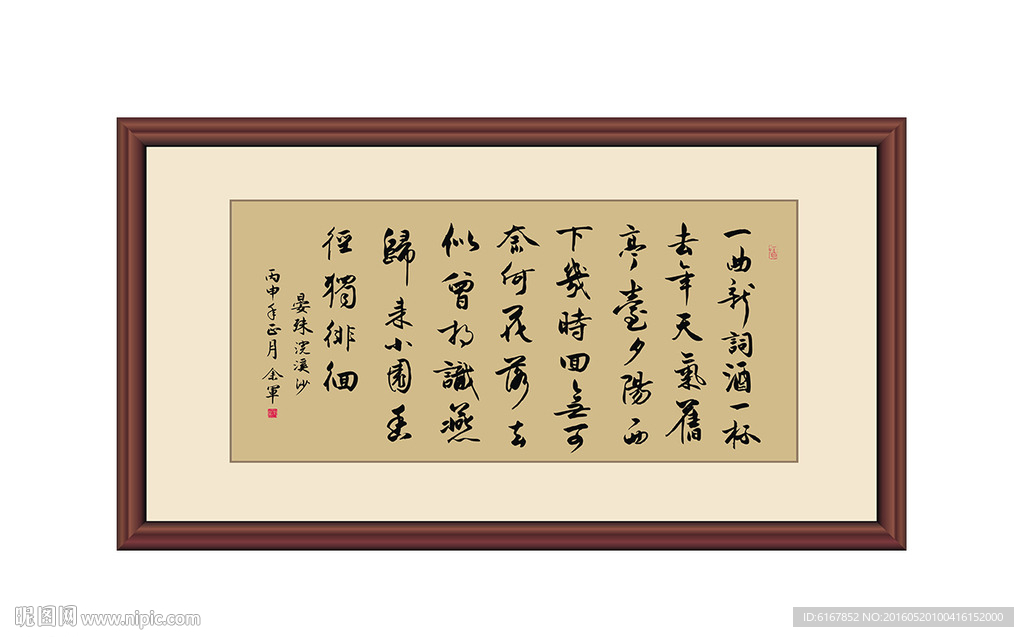 一曲新詞酒一杯
去年天氣舊
亭臺夕陽西
下幾時回無可
奈何花落去
似曾相識燕
歸来小園香
徑獨徘徊
晏殊浣溪沙
丙申年正月 余軍
昵图网 www.nipic.com
ID:6167852 NO:20160520100416152000